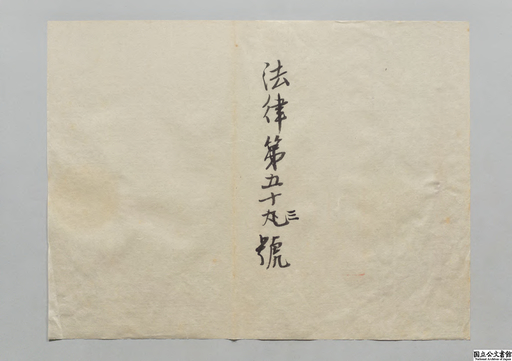 法律第五十九三號
国立公文書館
National Archives of Japan